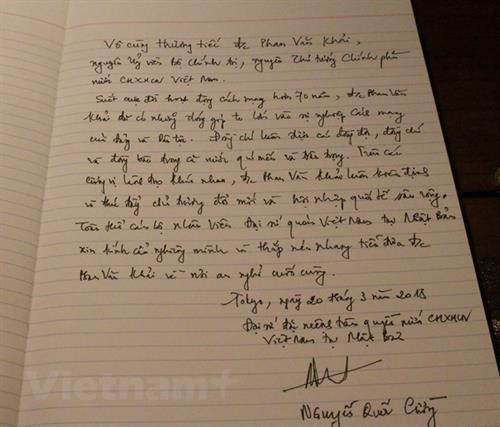 Vô cùng thương tiếc đ/c Phan Văn Khải,
nguyên Ủy viên Bộ Chính trị, nguyên Thủ tướng Chính phủ
nước CHXHCN Việt Nam.
Suốt cuộc đời hoạt động cách mạng hơn 70 năm, đ/c Phan Văn
Khải đã có những đóng góp to lớn vào sự nghiệp Cách mạng
của Đảng và Dân tộc. Đồng chí luôn được các đồng đội, đồng chí
và đồng bào trong cả nước quý mến và trân trọng. Trên các
cương vị lãnh đạo khác nhau, đ/c Phan Văn Khải luôn kiên định
và thúc đẩy chủ trương đổi mới và hội nhập quốc tế sâu rộng.
Toàn thể cán bộ nhân viên Đại sứ quán Việt Nam tại Nhật Bản
xin kính cẩn nghiêng mình và thắp nén nhang tiễn đưa đ/c
Phan Văn Khải về nơi an nghỉ cuối cùng.
Tokyo, ngày 20 tháng 3 năm 2018
Đại sứ đặc mệnh toàn quyền nước CHXHCN
Việt Nam tại Nhật Bản
Nguyễn Quốc Cường
Vietnam+